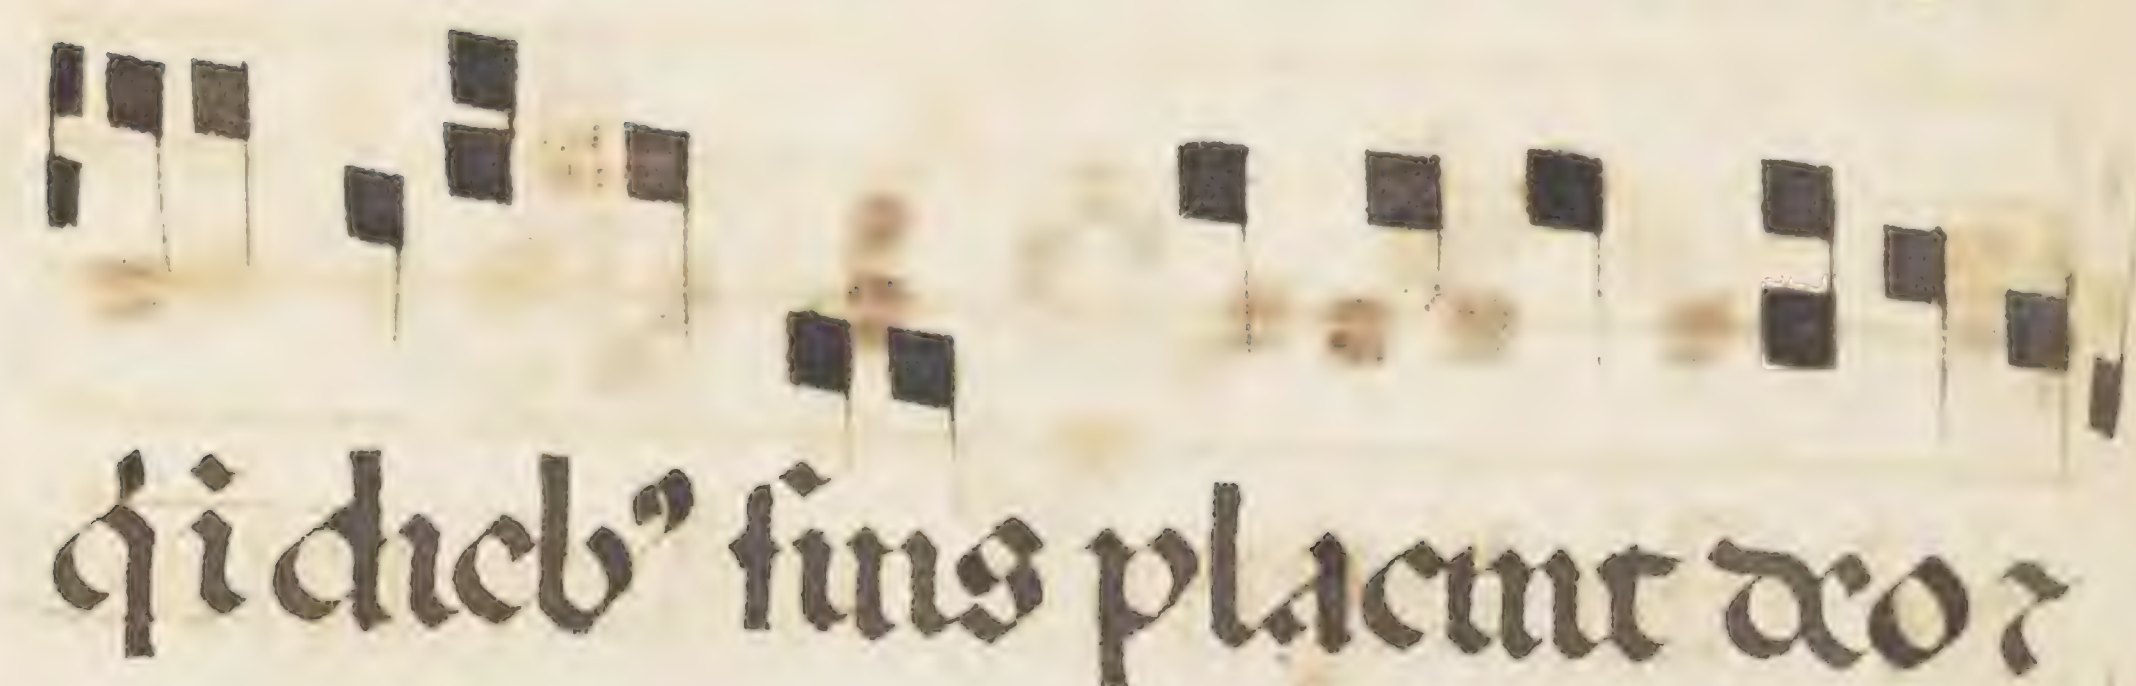 qi dieb⁹ suis placuit deo ⁊